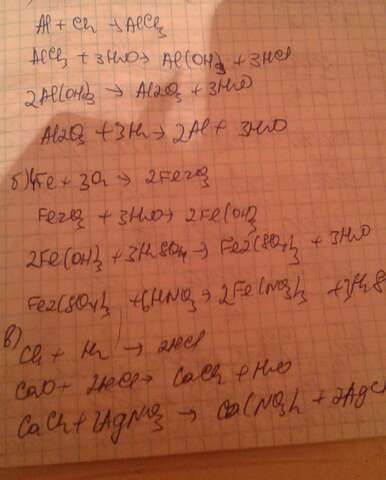 Al + Cl2 → AlCl3
AlCl3 + 3H2O → Al(OH)3 + 3HCl
2Al(OH)3 → Al2O3 + 3H2O
Al2O3 + 3H2 → 2Al + 3H2O
б) 4Fe + 3O2 → 2Fe2O3
Fe2O3 + 3H2O → 2Fe(OH)3
2Fe(OH)3 + 3H2SO4 → Fe2(SO4)3 + 3H2O
Fe2(SO4)3 + 6HNO3 → 2Fe(NO3)3 + 3H2S
в)
Cl2 + H2 → 2HCl
CaO + 2HCl → CaCl2 + H2O
CaCl2 + 2AgNO3 → Ca(NO3)2 + 2AgCl